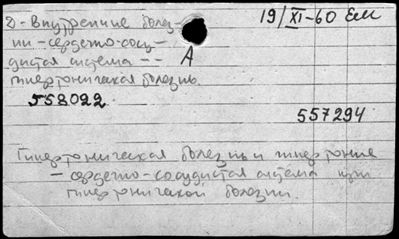 Д - Внутренние болез-
ни - сердечно-сосу-
дистая система --
гипертоническая болезнь.
19/XI-60 Ем
А
558022
557294
Гипертоническая болезнь и гипертония
- сердечно-сосудистая система при
гипертонической болезни.